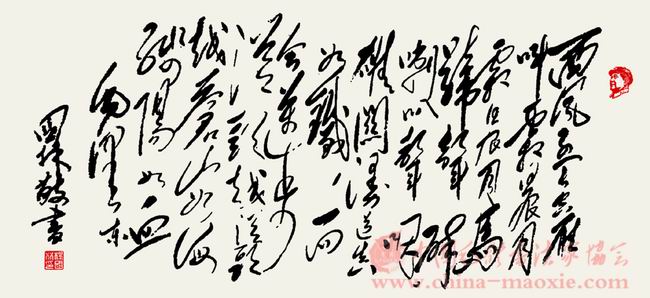 西风烈长空雁
叫霜晨月
霜晨月马
蹄声碎
喇叭声咽
雄关漫道真
如铁而
今迈步
从头越从头
越苍山如海
残阳如血
毛泽东
敬书
www.china-maoxie.com